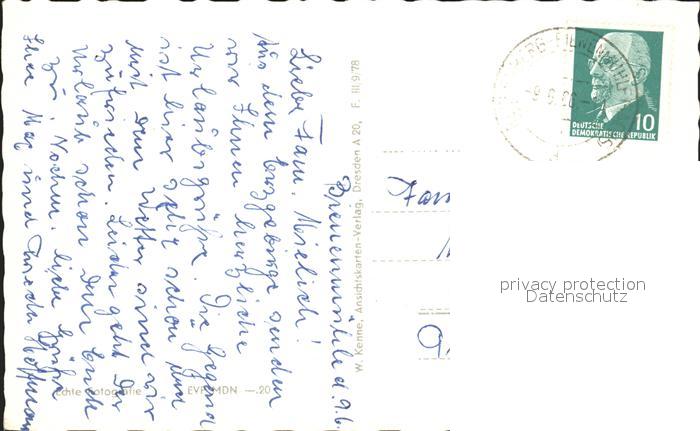 Bienenmühle d. 9.6.
Liebe Fam. Mielich!
Aus dem Erzgebirge senden
wir Ihnen herzliche
Urlaubsgrüße. Die Gegend
ist hier sehr schön und
mit dem Wetter sind wir
zufrieden. Leider geht der
Urlaub schon dem Ende
zu. Nochm. liebe Grüße
Ihre Max und Frieda Hoffmann
W. Kenne, Ansichtskarten-Verlag, Dresden A 20, F. III/9/78
Echte Fotografie EVP MDN —.20
Fam
10
DEUTSCHE
DEMOKRATISCHE REPUBLIK
privacy protection
Datenschutz